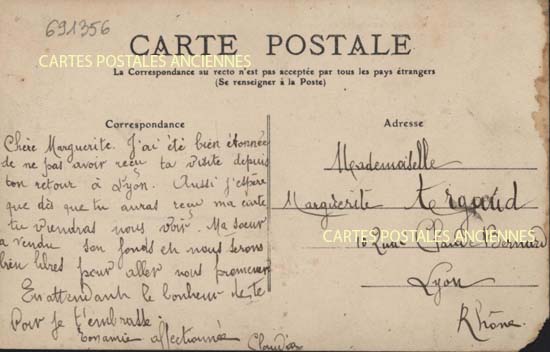 691356
CARTE POSTALE
CARTES POSTALES ANCIENNES
La Correspondance au recto n'est pas acceptée par tous les pays étrangers
(Se renseigner à la Poste)
Correspondance
Chère Marguerite. J'ai été bien étonnée
de ne pas avoir reçu ta visite depuis
ton retour à Lyon. Aussi j'espère
que dès que tu auras reçu ma carte
tu viendras nous voir. Ma soeur
a vendu son fonds et nous serons
bien libres pour aller nous promener
En attendant le bonheur de te
voir je t'embrasse.
Ton amie affectionnée
Adresse
Mademoiselle
Marguerite Argaud
CARTES POSTALES ANCIENNES
Rue Claude Bernard
Lyon
Rhône.